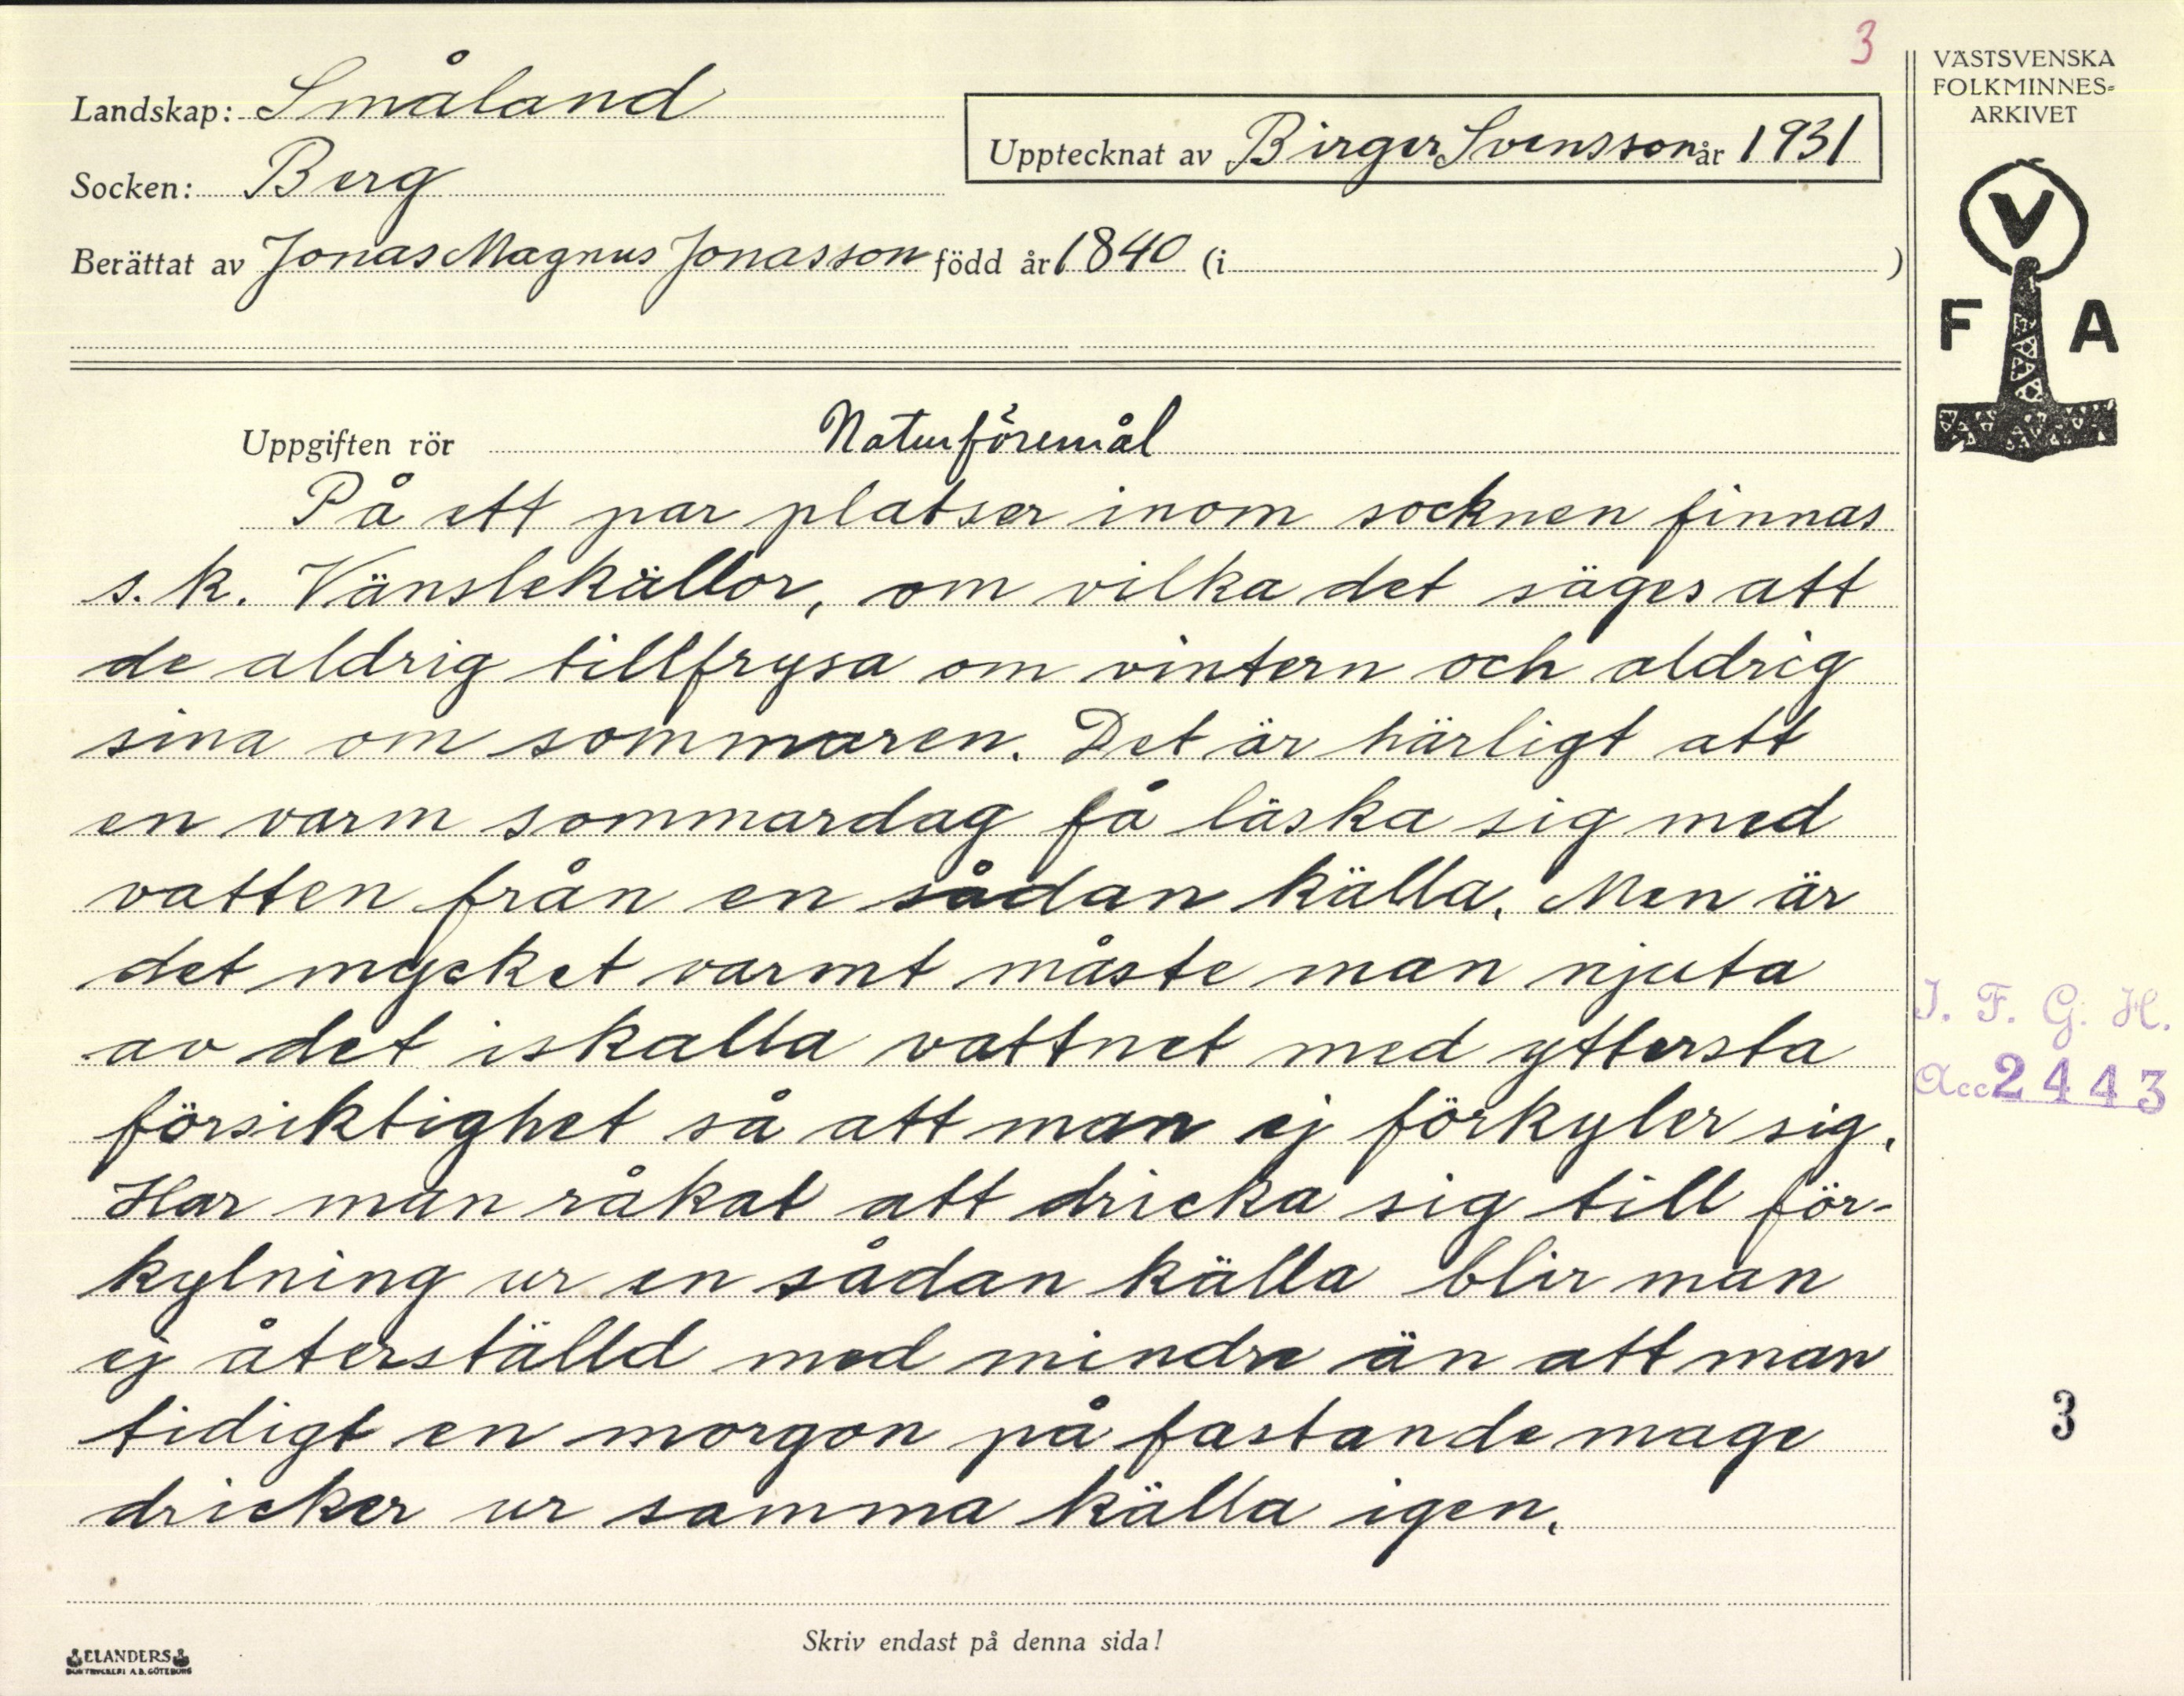 3
Landskap: Småland
Upptecknat av Birger Svensson år 1931
Socken: Berg
Berättat av Jonas Magnus Jonasson född år 1840 (i )
Uppgiften rör Naturföremål
På ett par platser inom socknen finnas
s.k. Vänslekällor, om vilka det säges att
de aldrig tillfrysa om vintern och aldrig
sina om sommaren. Det är härligt att
en varm sommardag få läska sig med
vatten från en sådan källa. Men är
det mycket varmt måste man njuta
av det iskalla vattnet med yttersta
försiktighet så att man ej förkyler sig.
Har man råkat att dricka sig till för-
kylning ur en sådan källa blir man
ej återställd med mindre än att man
tidigt en morgon på fastande mage
dricker ur samma källa igen.
Skriv endast på denna sida!
ELANDERS
BOKTRYCKERI A.B. GÖTEBORG
VÄSTSVENSKA
FOLKMINNES-
ARKIVET
V
F A
I. F. G. H.
Acc 2443
3